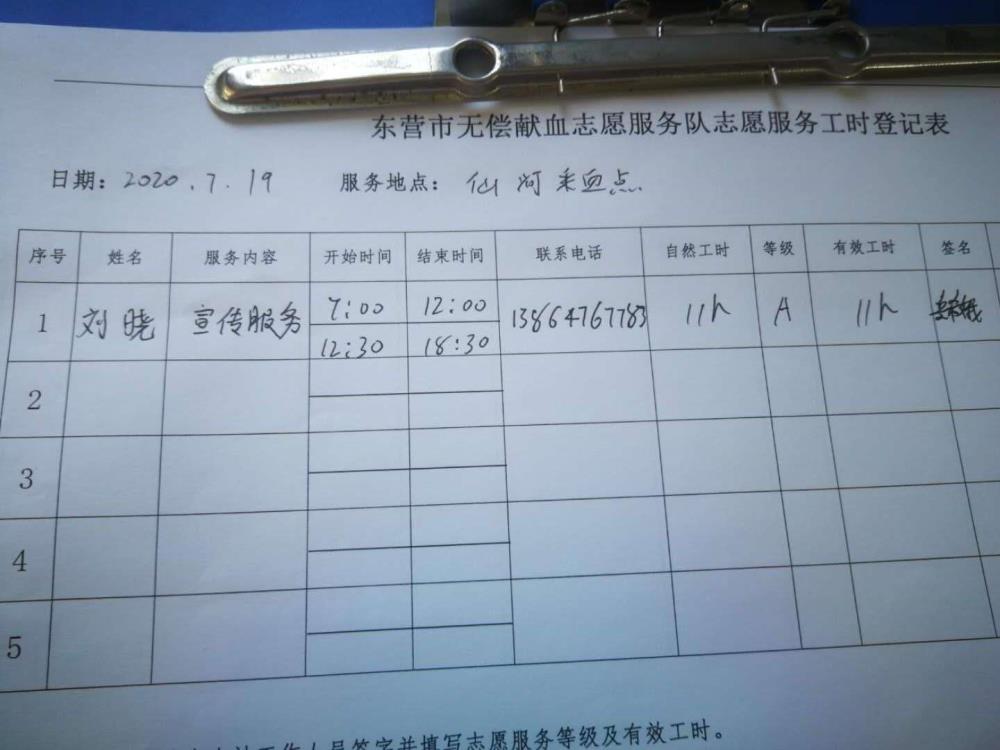 东营市无偿献血志愿服务队志愿服务工时登记表
日期：2020.7.19 服务地点：仙河采血点
序号 姓名 服务内容 开始时间 结束时间 联系电话 自然工时 等级 有效工时 签名
1 刘晓 宣传服务 7:00 12:00 13864767783 11h A 11h
12:30 18:30
2
3
4
5
工作人员签字并填写志愿服务等级及有效工时。